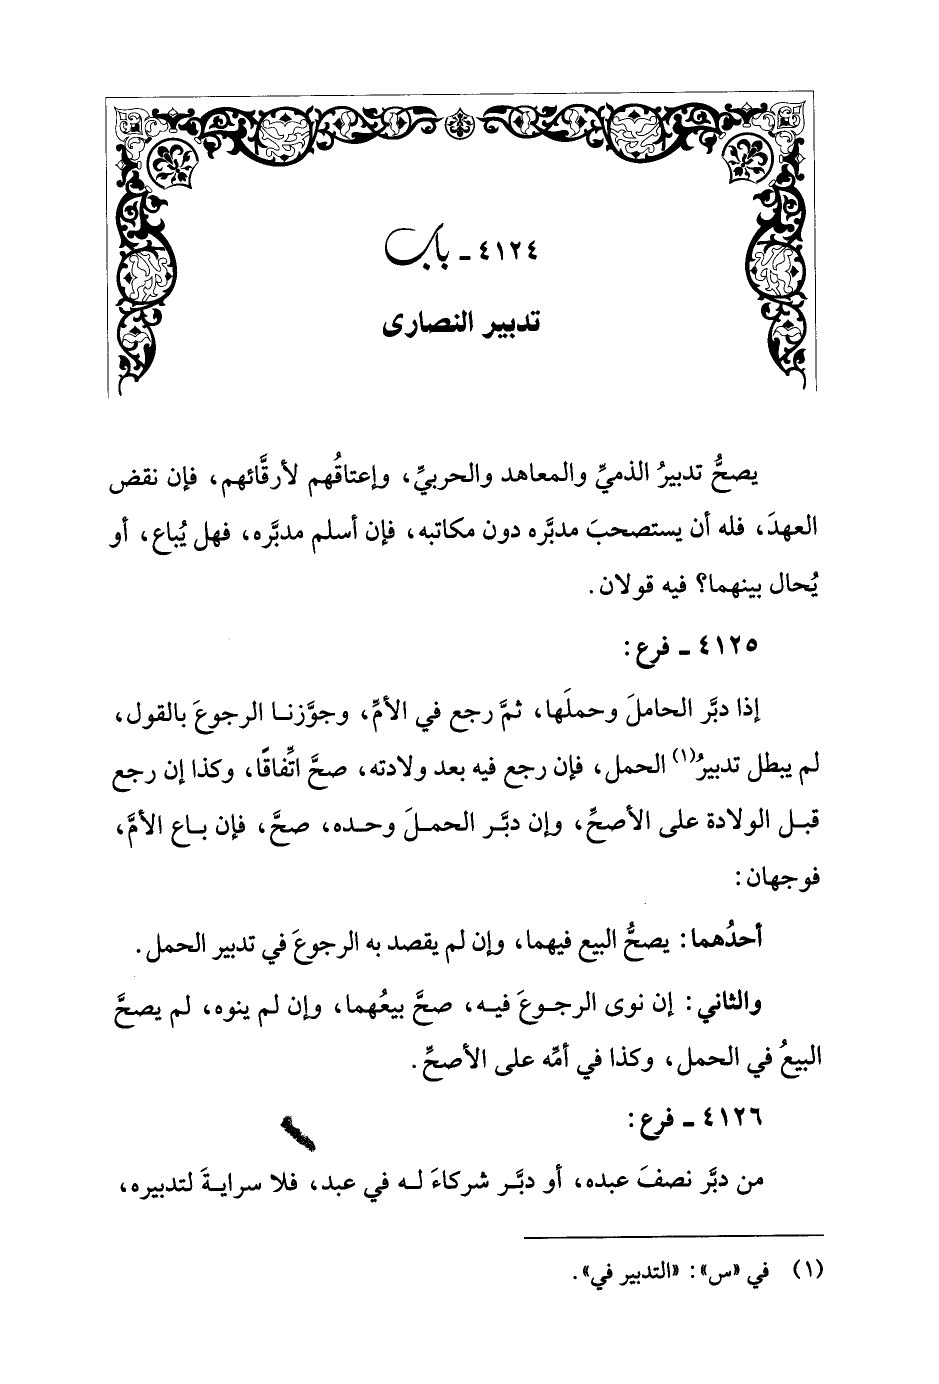 ٤١٢٤ ـ باب
تدبير النصارى
يصحُّ تدبيرُ الذميِّ والمعاهد والحربيِّ، وإعتاقُهم لأرقَّائهم، فإن نقض
العهدَ، فله أن يستصحبَ مدبَّره دون مكاتبه، فإن أسلم مدبَّره، فهل يُباع، أو
يُحال بينهما؟ فيه قولان.
٤١٢٥ ـ فرع:
إذا دبَّر الحاملَ وحملَها، ثمَّ رجع في الأمِّ، وجوَّزنا الرجوعَ بالقول،
لم يبطل تدبيرُ(١) الحمل، فإن رجع فيه بعد ولادته، صحَّ اتِّفاقًا، وكذا إن رجع
قبل الولادة على الأصحِّ، وإن دبَّر الحملَ وحده، صحَّ، فإن باع الأمَّ،
فوجهان:
أحدُهما: يصحُّ البيع فيهما، وإن لم يقصد به الرجوعَ في تدبير الحمل.
والثاني: إن نوى الرجوعَ فيه، صحَّ بيعُهما، وإن لم ينوه، لم يصحَّ
البيعُ في الحمل، وكذا في أمِّه على الأصحِّ.
٤١٢٦ ـ فرع:
من دبَّر نصفَ عبده، أو دبَّر شركاءَ له في عبد، فلا سرايةَ لتدبيره،
(١) في «س»: «التدبير في».